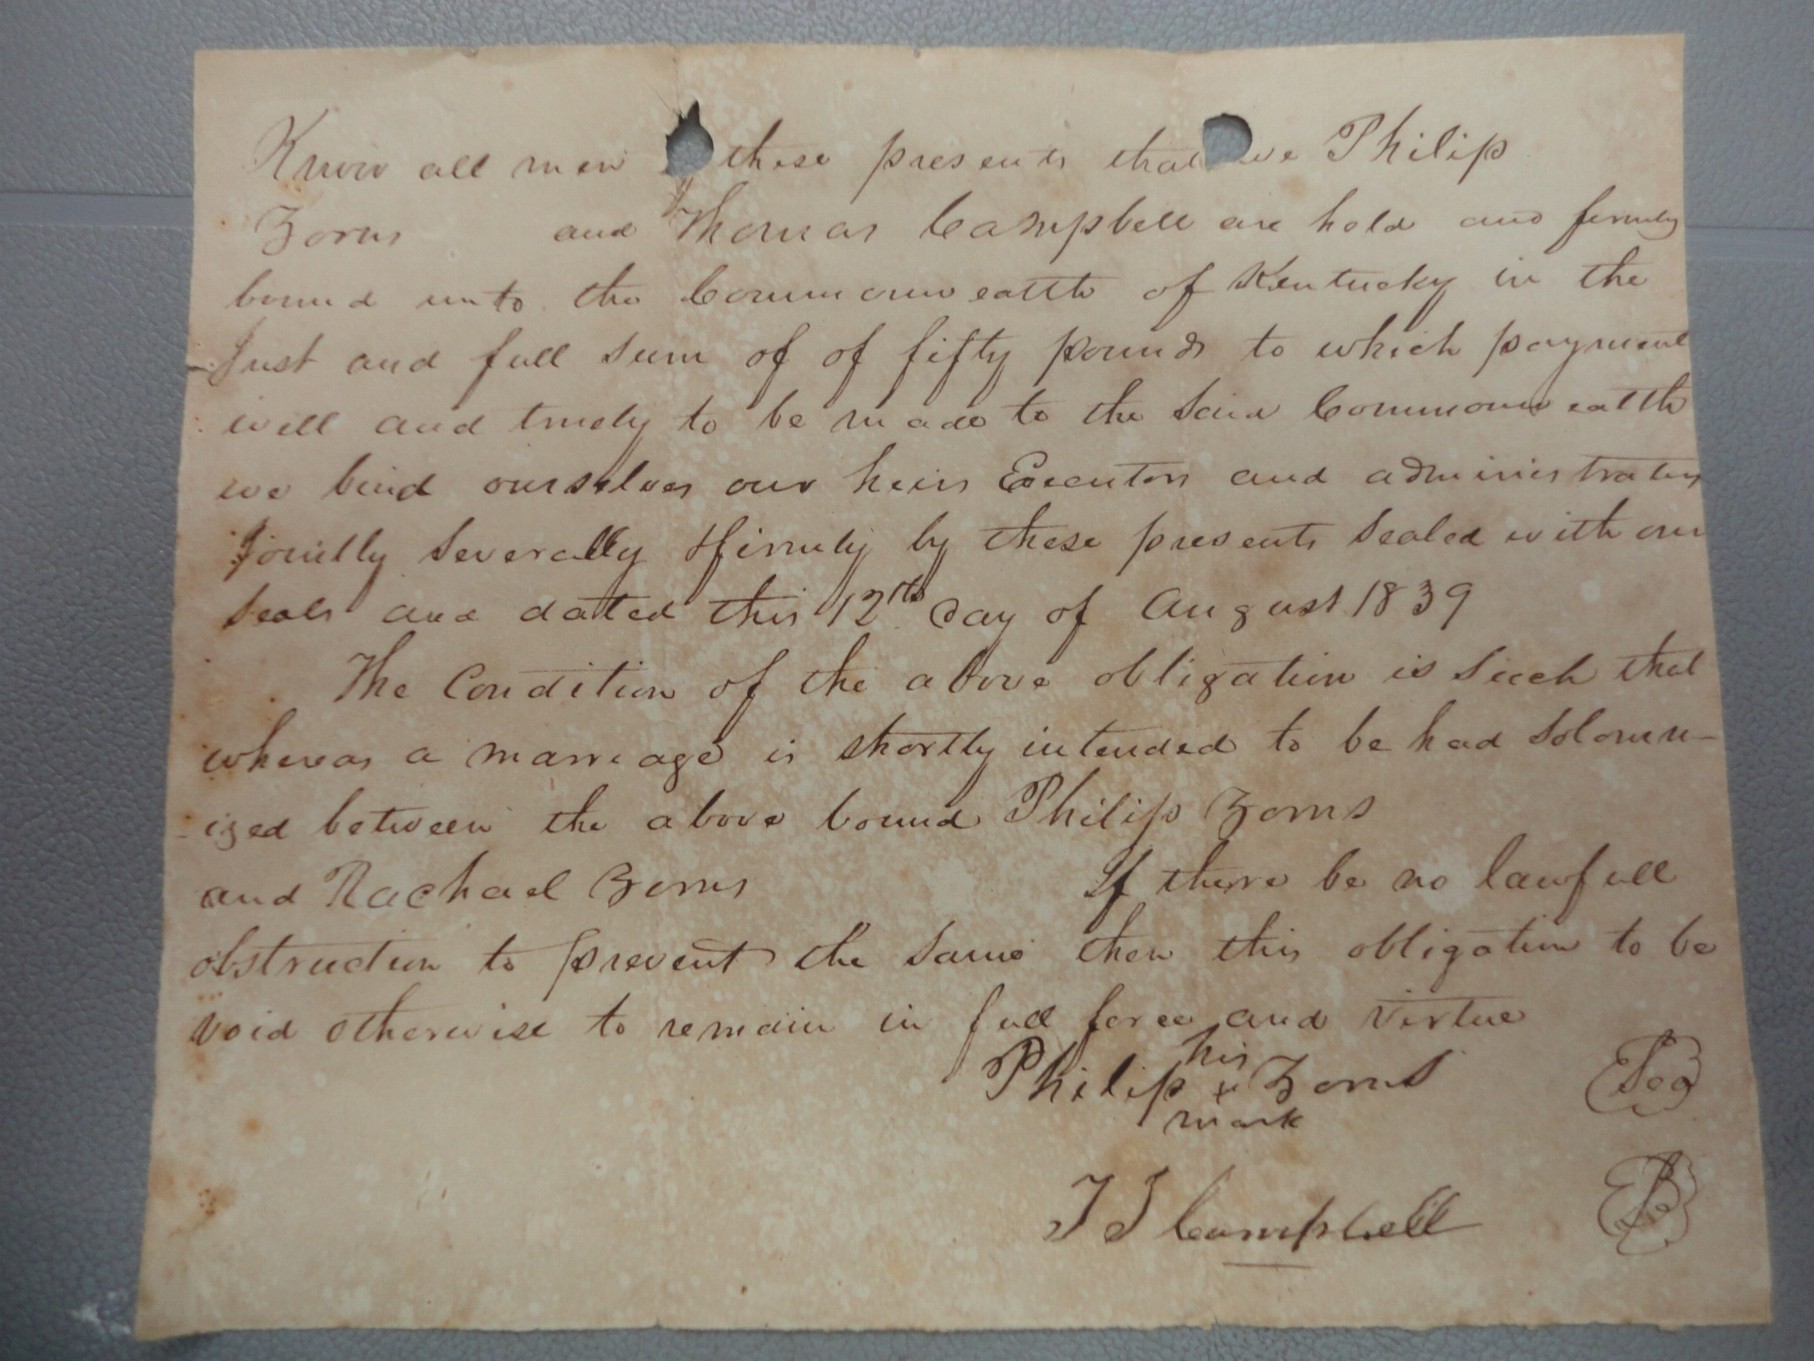 Know all men these presents that we Philip
Zorns and Thomas Campbell are held and firmly
bound unto the Commonwealth of Kentucky in the
Just and full sum of of fifty pounds to which payment
well and truely to be made to the said Commonwealth
we bind ourselves our heirs Executors and administrators
Jointly Severally &firmly by these presents Sealed with our
Seals and dated this 12th day of August 1839
The Condition of the above obligation is Such that
whereas a marriage is shortly intended to be had Solomn-
-ized between the above bound Philip Zorns
and Rachael Zorns If there be no lawfull
obstruction to prevent the Same then this obligation to be
void otherwise to remain in full force and Virtue
his
Philip x Zorns Sea
mark
T J Campbell